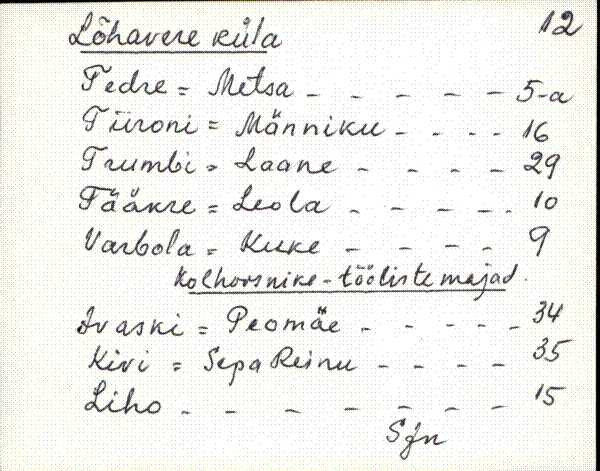 Lõhavere küla 12
Tedre = Metsa - - - - - 5-a
Tiironi = Männiku - - - - 16
Trumbi = Laane - - - - 29
Tääkre = Leola - - - - - 10
Varbola = Kuke - - - - 9
Kolhoosnike-tööliste majad.
Ivaski = Peomäe - - - - - 34
Kivi = Sepa Reinu - - - - 35
Liho - - - - - - - 15